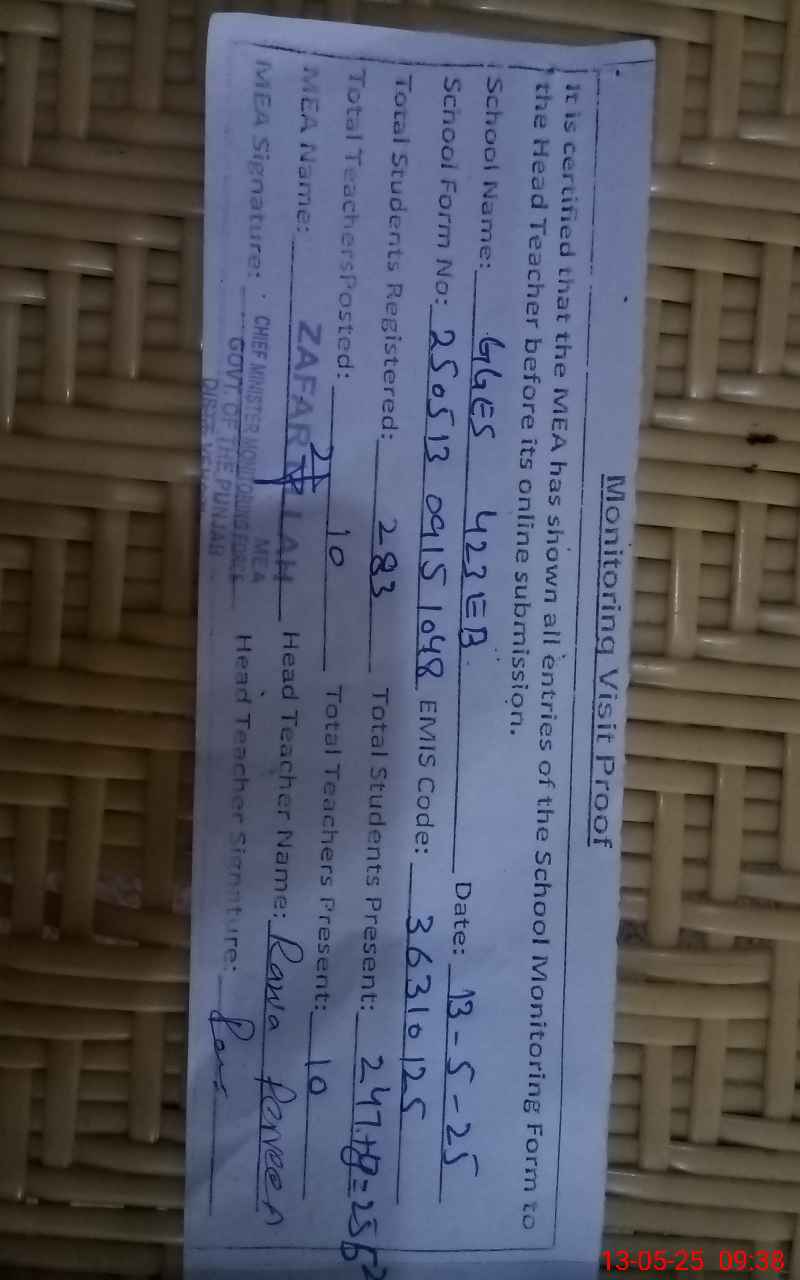 Monitoring Visit Proof
It is certified that the MEA has shown all entries of the School Monitoring Form to
the Head Teacher before its online submission.
School Name: GGES 423 EB Date: 13-5-25
School Form No: 250513 0915 1048 EMIS Code: 36310125
Total Students Registered: 283 Total Students Present: 247+9=256
Total Teachers Posted: 10 Total Teachers Present: 10
MEA Name: ZAFAR Head Teacher Name: Rana Perveen
MEA Signature: Head Teacher Signature:
MEA
CHIEF MINISTER MONITORING FORCE
GOVT. OF THE PUNJAB
13-05-25 09:38